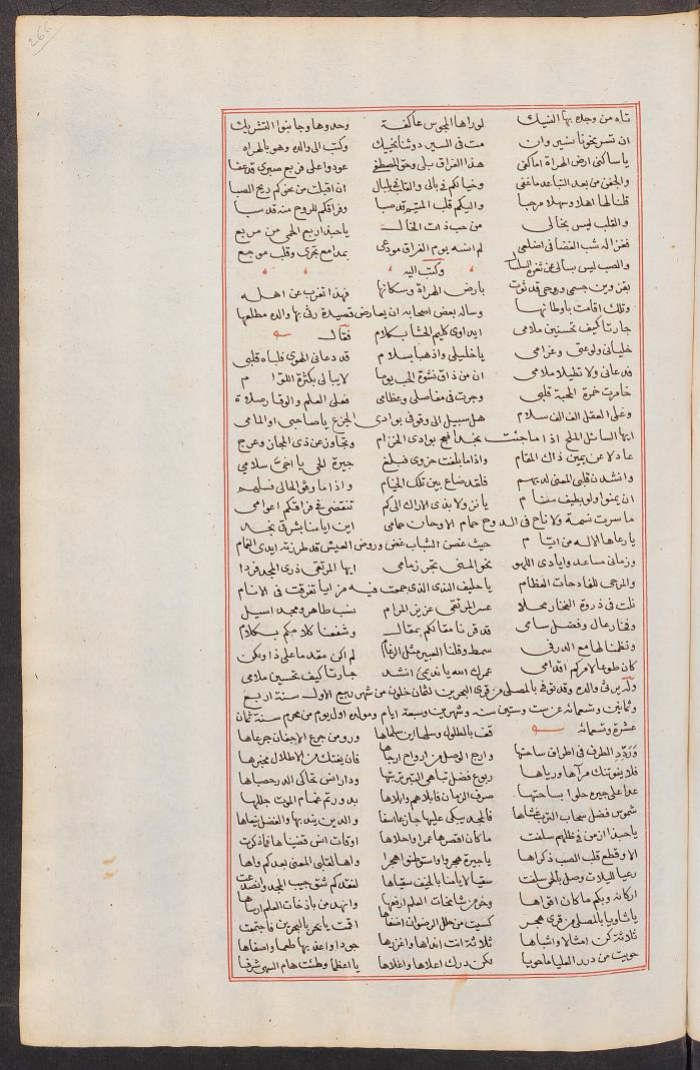 266
تاه من وجده بها النيك لوراها المجوس عاكفة وحدوها وجانبوا التشريك
ان تسر نحونا نسير وان مت في السير دوننا نحييك وكتب الى والده وهو بالهراة
يا ساكنى ارض الهراة اما كفى هذا الفراق بلى وحق المصطفى عودوا على فربع صبرى قد عفا
والجفن من بعد التباعد ما غفى وخيالكم في بالى والقلب في بلبال ان اقبلت من نحوكم ريح الصبا
قلنا لها اهلا وسهلا مرحبا واليكم قلب المتيم قد صبا وفراقكم للروح منه قد سبا
والقلب ليس بخالى من حب ذات الخال يا حبذا ربع الحمى من مربع
فغزاله شب الغضا فى اضلعى لم انسه يوم الفراق مودعى بمدامع تجرى وقلب موجع
والصب ليس بسالى عن ثغره السلسال وكتب اليه
بقزوين جسمى وروحى قد ثوت بارض الهراة وسكانها فهذا تغرب عن اهله
وتلك اقامت باوطانها وساله بعض اصحابه ان يعارض قصيدة رثى بها والده مطلعها
جارتا كيف تحسنين ملامى ايداوى كليم الحشا بكلام فقال
خليانى ولوعتى وغرامى يا خليلى واذهبا بسلام قد دعانى الهوى فلباه قلبى
فدعانى ولا تطيلا ملامى ان من ذاق نشوة الحب يوما لا يبالى بكثرة اللوام
خامرت خمرة المحبة قلبى وجرت في مفاصلى وعظامى فعلى العلم والوقار صلاة
وعلى العقل الف الف سلام هل سبيل الى وقوفى بوادى الجزع يا صاحبى او المامى
ايها السائل الملح اذا ما جئت نجدا فعج بوادى الخزام وتجاوز عن ذى المجاز وعرج
عادلا عن يمين ذاك المقام واذا ما بلغت حزوى فبلغ جيرة الحى يا اخى سلامى
وانشدن قلبى المعنى لديهم فلقد ضاع بين تلك الخيام واذا ما رثوا لحالى فسلهم
ان يمنوا ولو بطيف منام يا نزولا بذى الاراك الى كم تنقضى في فراقكم اعوامى
ما سرت نسمة ولا ناح فى الدوح حمام الا وحان حمامى اين ايامنا بشرقى نجد
يا رعاها الاله من ايام حيث غصن الشباب غض وروض العيش قد طرزته ايدى الغمام
وزمانى مساعد وايادى اللهو نحو المنى تجر زمامى ايها المرتقى ذرى المجد فردا
والمرجى للفادحات العظام يا حليف الندى الذى جمعت فيه مزايا تفرقت في الانام
نلت في ذروة الفخار محلا عسر المرتقى عزيز المرام نسب طاهر ومجد اسيل
وفخار عال وفضل سامى قد قرنا مقالكم بمقال وشفعنا كلامكم بكلام
ونظمنا لها مع الدر فى سمط وقلنا العبير مثل الرغام لم اكن مقدما على ذا ولكن
كان طوعا لامركم اقدامى عمرك الله يا نديمى انشد جارتا كيف تحسنين ملامى
وله يرثى والده وقد توفى بالمصلى من قرى البحرين لثمان خلون من شهر ربيع الاول سنة اربع
وثمانين وتسعمائه عن ست وستين سنه وشهرين وسبعة ايام ومولده اول يوم من محرم سنة ثمان
عشرة وتسعمائه قف بالطلول وسلها اين سلماها ورو من جرع الاجفان جرعاها
وردد الطرف فى اطراف ساحتها وارج الوصل من ارواح ارجاها فان يفتك من الاطلال مخبرها
فلا يفوتنك مرآها ورياها ربوع فضل تباهى التبر تربتها ودار انس تحاكى الدر حصباها
عدا على جيرة حلوا بساحتها صرف الزمان فابلاهم وابلاها بدور تم غمام الموت جللها
شموس فضل سحاب الترب غشاها فالمجد يبكى عليها جازعا اسفا والدين يندبها والفضل ينعاها
يا حبذا ازمن فى ظلهم سلفت ما كان اقصرها عمرا واحلاها اوقات انس قضيناها فما ذكرت
الا وقطع قلب الصب ذكراها يا جيرة هجروا واستوطنوا هجرا واها لقلبى المعنى بعدكم واها
رعيا لليلات وصل بالحمى سلفت سقيا لايامنا بالخيف سقياها لفقدكم شق جيب المجد وانصدعت
اركانه وبكم ما كان اقواها وخر من شامخات العلم ارفعها وانهد من باذخات العلم ارساها
يا ثاويا بالمصلى من قرى هجر كسيت من حلل الرضوان اضفاها اقمت يا بحر بالبحرين فاجتمعت
ثلاثة كن امثالا واشباها ثلاثة انت انداها واغزرها جودا واعذبها طعما واصفاها
حويت من درر العليا ما حويا لكن درك اعلاها واغلاها يا اعظما وطئت هام السهى شرفا